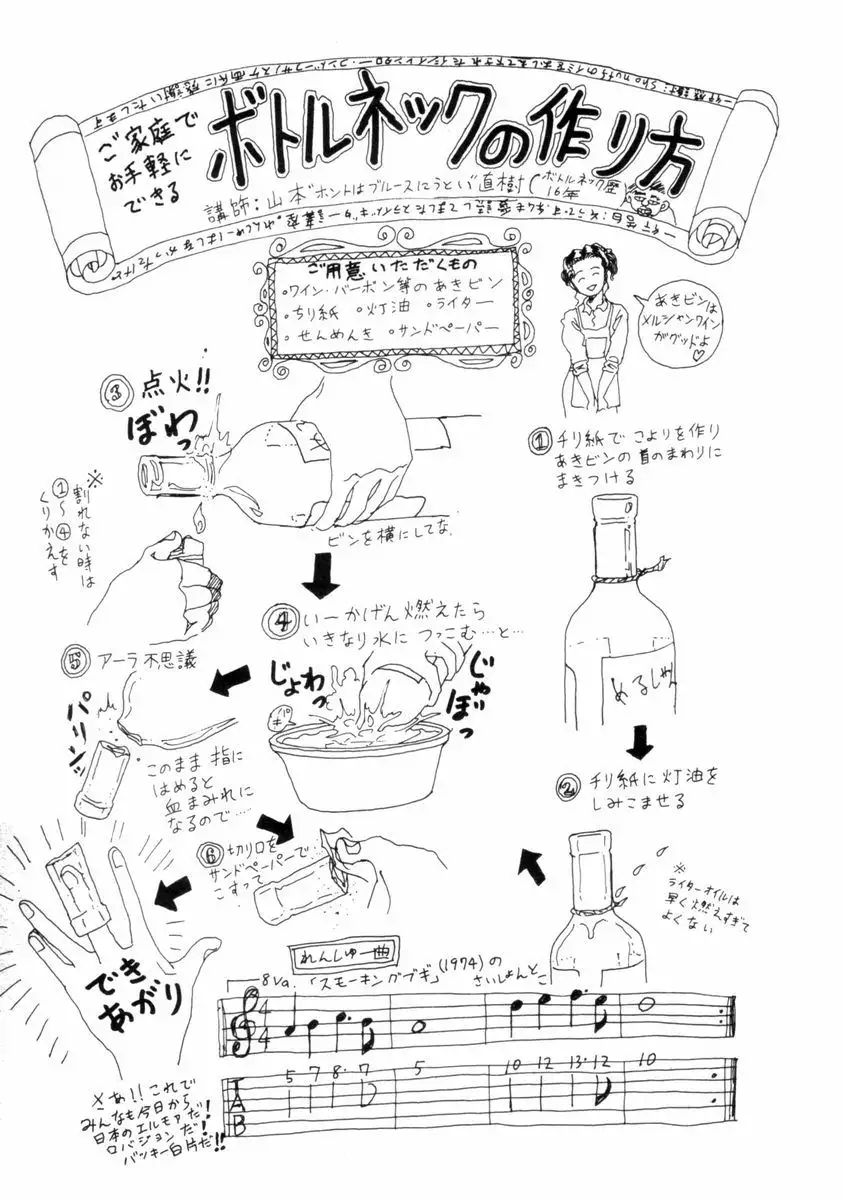 ご家庭で
お手軽に
できる
ボトルネックの作り方
講師:山本"ホントはブルースにうとい"直樹(ボトルネック歴
16年
ご用意いただくもの
○ワイン・バーボン等のあきビン
○ちり紙 ○灯油 ○ライター
○せんめんき ○サンドペーパー
あきビンは
メルシャンワイン
がグッドよ
♡
① チリ紙でこよりを作り
あきビンの首のまわりに
まきつける
めるしゃん
② チリ紙に灯油を
しみこませる
※
ライターオイルは
早く燃えすぎて
よくない
③ 点火!!
ぼわっ
ビンを横にしてな.
※
割れない時は
①〜④を
くりかえす
④ いーかげん燃えたら
いきなり水につっこむ…と…
じょわっ
じゃぼっ
⑤ アーラ不思議
パリンッ
このまま指に
はめると
血まみれに
なるので…
⑥ 切り口を
サンドペーパーで
こすって
でき
あがり
れんしゅー曲
8va. 「スモーキングブギ」(1974)の
さいしょんとこ
4
4
T
A
B
5 7 8. 7 5 10 12 13. 12 10
※さあ!!これで
みんなも今日から
日本のエルモアだ!
ロバジョンだ!
バッキー白片だ!!